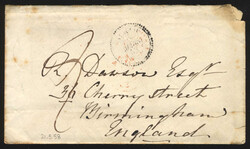 R Dawson Esqr
31 Cherry Street
Birmingham
England